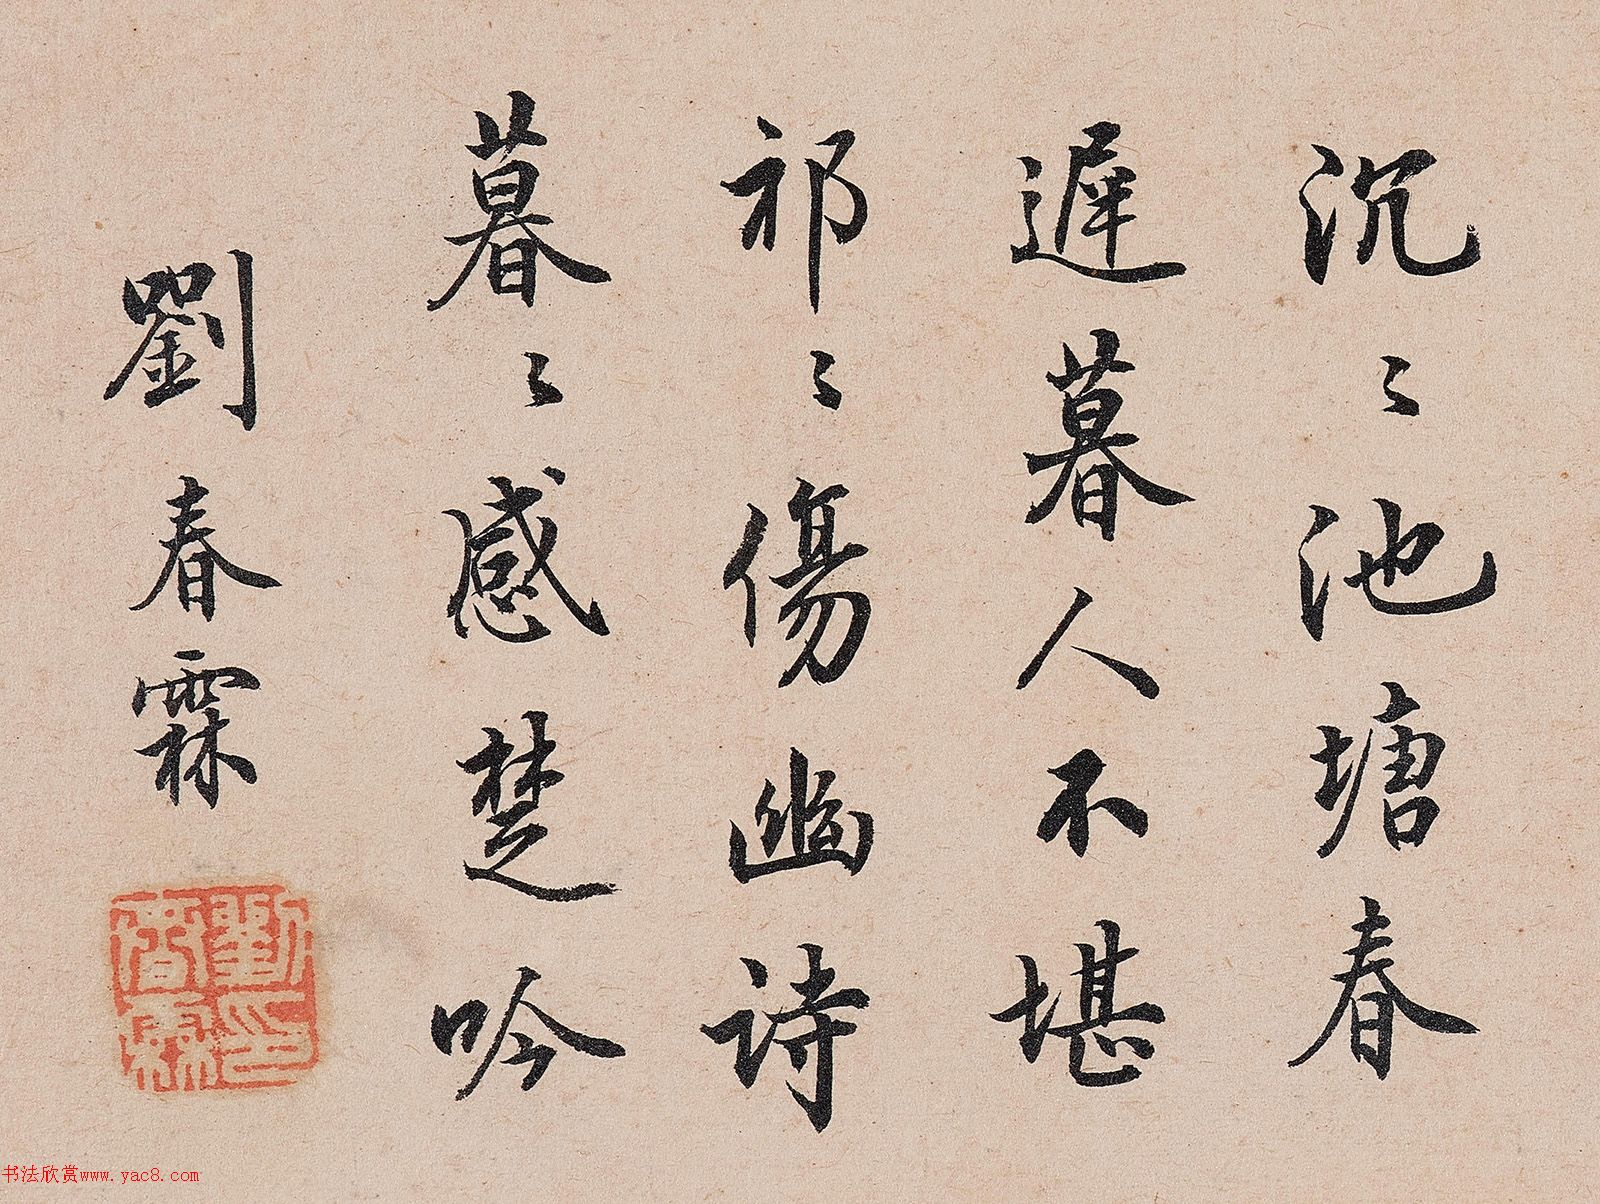 沉〻池塘春
遲暮人不堪
祁〻傷豳詩
暮〻感楚吟
劉春霖
劉春霖印
书法欣赏www.yac8.com